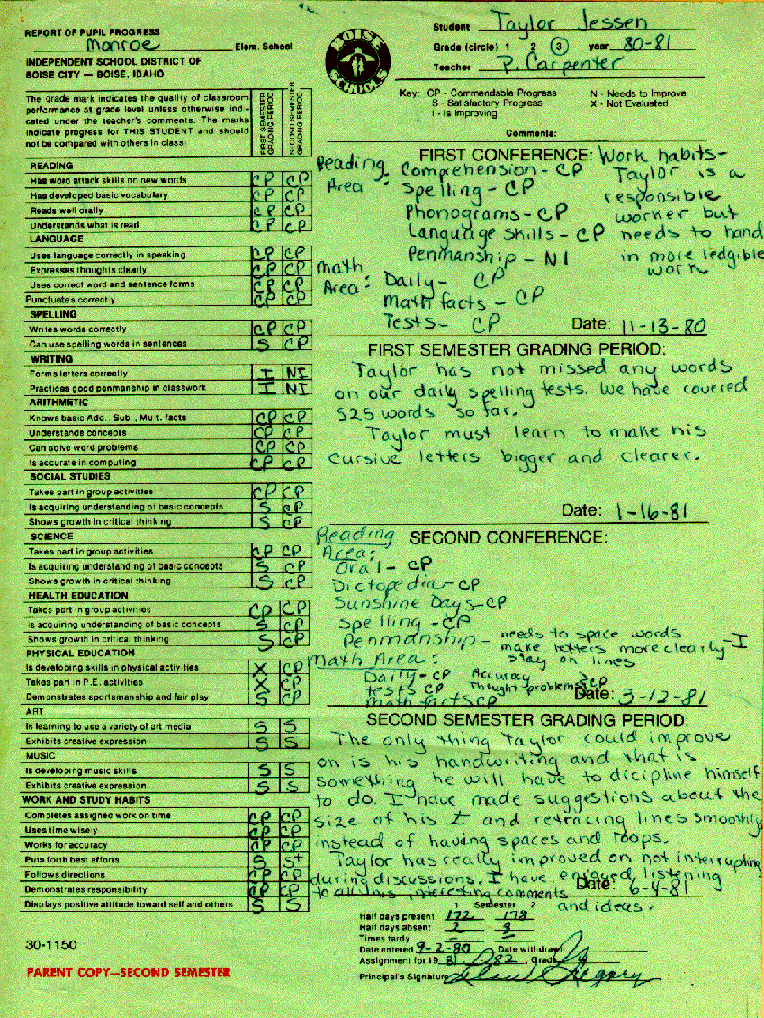 REPORT OF PUPIL PROGRESS
Monroe Elem. School
INDEPENDENT SCHOOL DISTRICT OF
BOISE CITY — BOISE, IDAHO
The grade mark indicates the quality of classroom
performance at grade level unless otherwise indi-
cated under the teacher's comments. The marks
indicate progress for THIS STUDENT and should
not be compared with others in class.
FIRST SEMESTER
GRADING PERIOD
SECOND SEMESTER
GRADING PERIOD
READING
Has word attack skills on new words CP CP
Has developed basic vocabulary CP CP
Reads well orally CP CP
Understands what is read CP CP
LANGUAGE
Uses language correctly in speaking CP CP
Expresses thoughts clearly CP CP
Uses correct word and sentence forms CP CP
Punctuates correctly CP CP
SPELLING
Writes words correctly CP CP
Can use spelling words in sentences S CP
WRITING
Forms letters correctly I NI
Practices good penmanship in classwork I NI
ARITHMETIC
Knows basic Add., Sub., Mult. facts CP CP
Understands concepts CP CP
Can solve word problems CP CP
Is accurate in computing CP CP
SOCIAL STUDIES
Takes part in group activities CP CP
Is acquiring understanding of basic concepts S CP
Shows growth in critical thinking S CP
SCIENCE
Takes part in group activities CP CP
Is acquiring understanding of basic concepts S CP
Shows growth in critical thinking S CP
HEALTH EDUCATION
Takes part in group activities CP CP
Is acquiring understanding of basic concepts S CP
Shows growth in critical thinking S CP
PHYSICAL EDUCATION
Is developing skills in physical activities X CP
Takes part in P.E. activities X CP
Demonstrates sportsmanship and fair play S CP
ART
Is learning to use a variety of art media S S
Exhibits creative expression S S
MUSIC
Is developing music skills S S
Exhibits creative expression S S
WORK AND STUDY HABITS
Completes assigned work on time CP CP
Uses time wisely CP CP
Works for accuracy CP CP
Puts forth best efforts S S+
Follows directions CP CP
Demonstrates responsibility CP CP
Displays positive attitude toward self and others S S
30-1150
PARENT COPY—SECOND SEMESTER
BOISE SCHOOLS
Student Taylor Jessen
Grade (circle) 1 2 3 year 80-81
Teacher P. Carpenter
Key: CP - Commendable Progress N - Needs to Improve
S - Satisfactory Progress X - Not Evaluated
I - Is Improving
Comments:
FIRST CONFERENCE: Work habits-
Reading Area: Comprehension - CP Taylor is a
Spelling - CP responsible
Phonograms - CP worker but
Language skills - CP needs to hand
Penmanship - NI in more ledgible
work
Math Area: Daily - CP
Math facts - CP
Tests - CP Date: 11-13-80
FIRST SEMESTER GRADING PERIOD:
Taylor has not missed any words
on our daily spelling tests. We have covered
525 words so far.
Taylor must learn to make his
cursive letters bigger and clearer.
Date: 1-16-81
SECOND CONFERENCE:
Reading Area:
Oral - CP
Dictopedia - CP
Sunshine Days - CP
Spelling - CP
Penmanship - needs to space words
make letters more clearly - I
stay on lines
Math Area:
Daily - CP Accuracy
tests CP Thought problems CP
math facts CP Date: 3-12-81
SECOND SEMESTER GRADING PERIOD:
The only thing Taylor could improve
on is his handwriting and that is
something he will have to dicipline himself
to do. I have made suggestions about the
size of his t and retracing lines smoothly
instead of having spaces and loops.
Taylor has really improved on not interrupting
during discussions. I have enjoyed listening
to all his interesting comments Date: 6-4-81
and ideas.
Semester
1 2
Half days present 172 178
Half days absent 2
Times tardy
Date entered 9-2-80 Date withdrawn
Assignment for 19 81 - 82, Grade 4
Principal's Signature